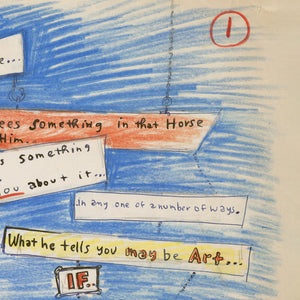 1
e...
ees something in that Horse
Him...
s something
you about it...
In any one of a number of ways.
What he tells you may be Art...
IF..